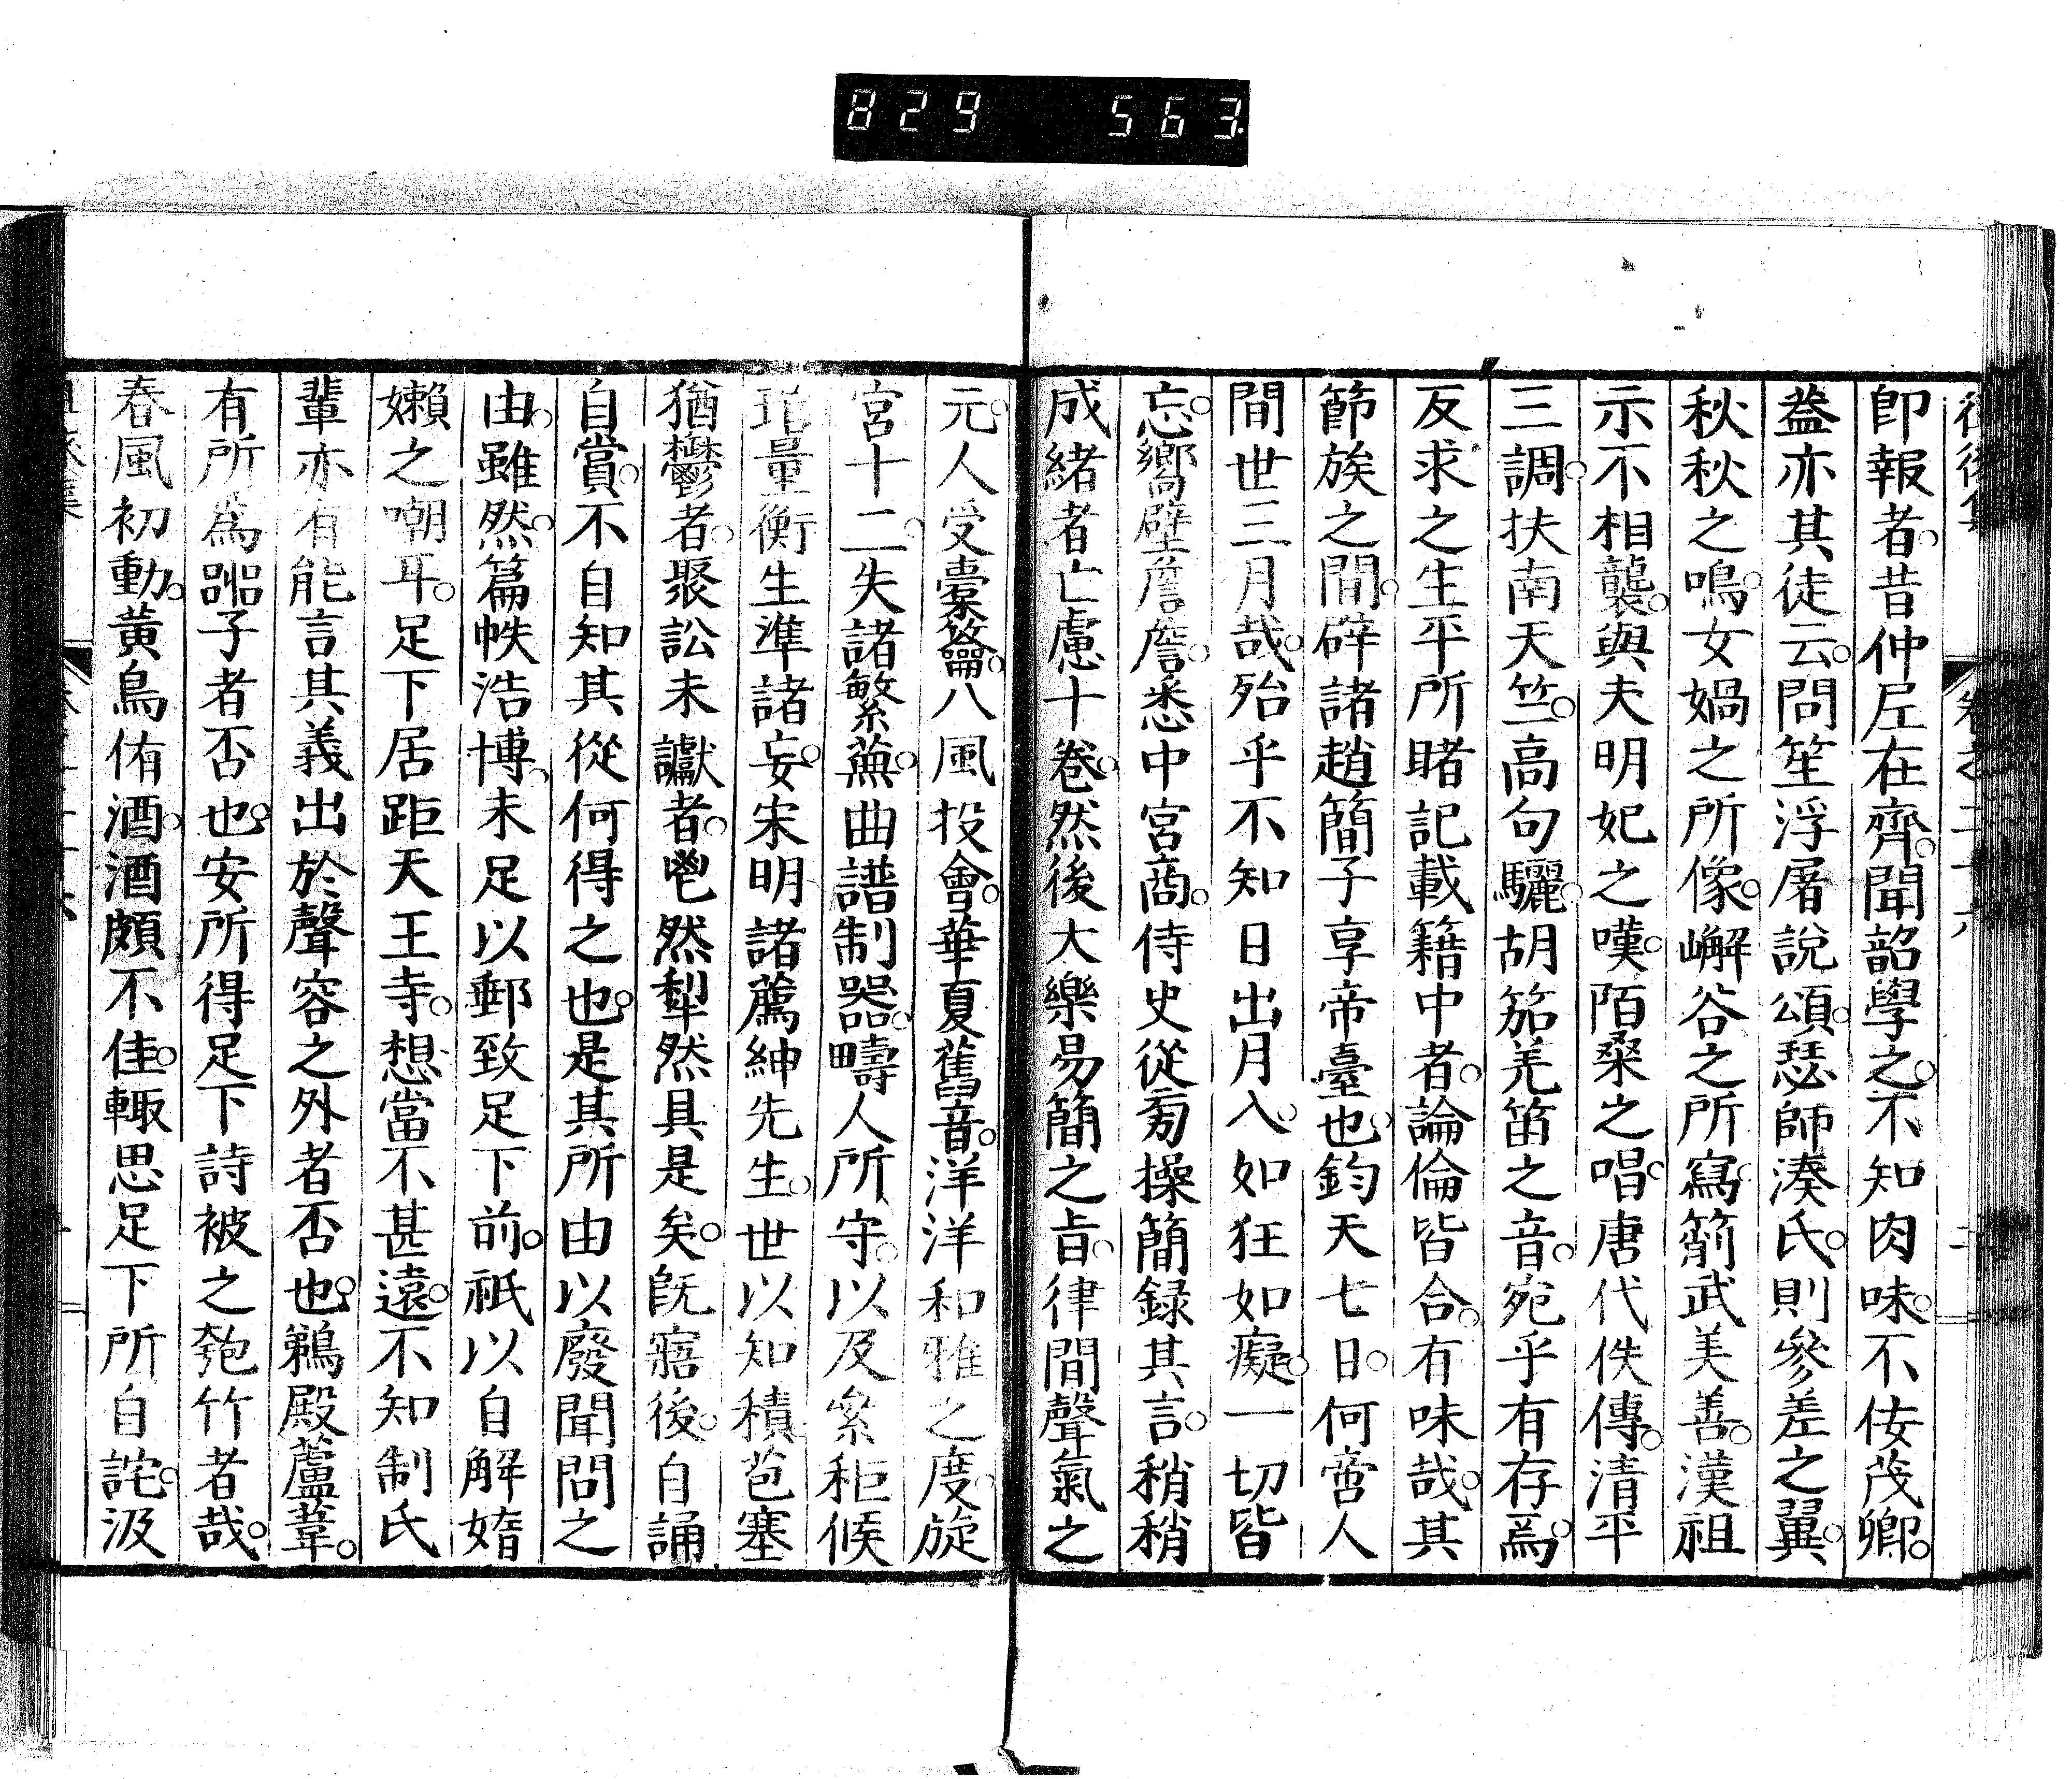 829 563
卽報者昔仲尼在齊聞韶學之不知肉味不佞茂卿
蓋亦其徒云問笙浮屠說頌瑟師湊氏則參差之翼
秋秋之鳴女媧之所像嶰谷之所寫箾武美善漢祖
示不相襲與夫明妃之嘆陌桑之唱唐代佚傳清平
三調扶南天竺高句驪胡笳羌笛之音宛乎有存焉
反求之生平所睹記載籍中者論倫皆合有味哉其
節族之間辟諸趙簡子享帝臺也鈞天七日何啻人
間世三月哉殆乎不知日出月入如狂如癡一切皆
忘嚮壁詹詹悉中宮商侍史從旁操簡録其言稍稍
成緒者亡慮十卷然後大樂易簡之旨律間聲氣之
元人受橐籥八風投會華夏舊音洋洋和雅之度旋
宮十二失諸繁蕪曲譜制器疇人所守以及絫秬候
琯量衡生準諸妄宋明諸薦紳先生世以知積芚塞
猶鬱者聚訟未讞者鬯然犁然具是矣旣寤後自誦
自賞不自知其從何得之也是其所由以廢聞問之
由雖然篇帙浩博未足以郵致足下前祇以自解婧
嬾之嘲耳足下居距天王寺想當不甚遠不知制氏
輩亦有能言其義出於聲容之外者否也鵜殿蘆葦
有所爲謳子者否也安所得足下詩被之匏竹者哉
春風初動黃鳥侑酒酒頗不佳輙思足下所自詫汲